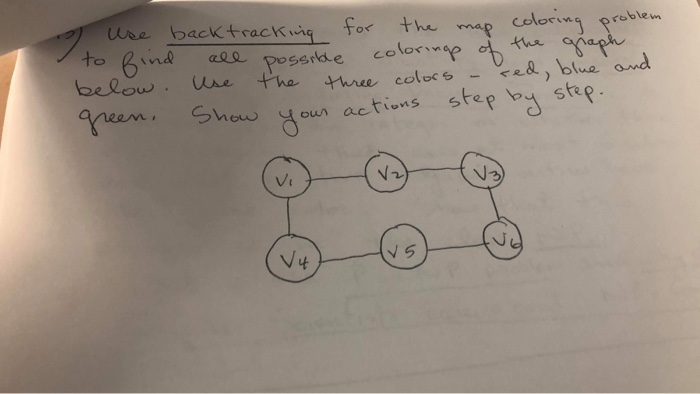 Use backtracking for the map coloring problem
to find all possible colorings of the graph
below. Use the three colors - red, blue and
green. Show your actions step by step.
V1 V2 V3
V4 V5 V6